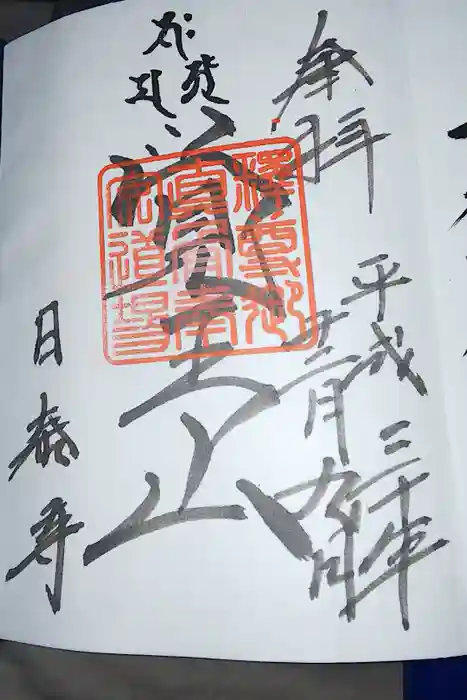 奉拝
平成三十年
十二月九日
覺王山
釋尊御
真骨奉
安道場
日泰寺